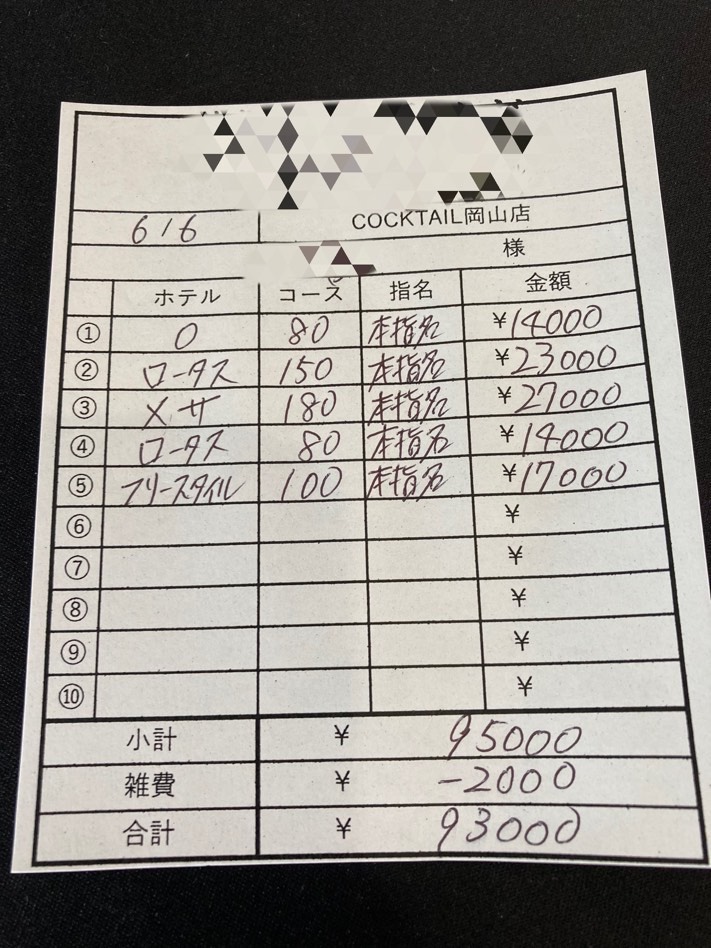 616 COCKTAIL岡山店
様
ホテル コース 指名 金額
① O 80 本指名 ¥14000
② ロータス 150 本指名 ¥23000
③ メサ 180 本指名 ¥27000
④ ロータス 80 本指名 ¥14000
⑤ フリースタイル 100 本指名 ¥17000
⑥ ¥
⑦ ¥
⑧ ¥
⑨ ¥
⑩ ¥
小計 ¥ 95000
雑費 ¥ -2000
合計 ¥ 93000